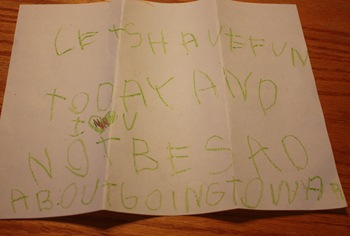 LETS HAVE FUN
TODAY AND
I ♥ U
NOT BE SAD
ABOUT GOING TO